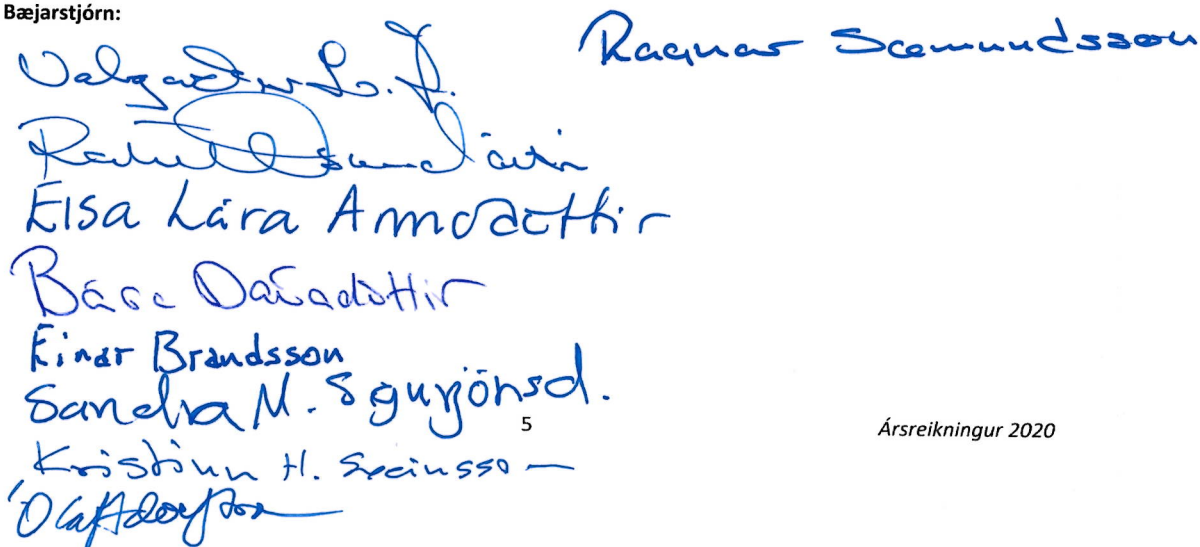 Bæjarstjórn:
Ragnar Sæmundsson
Valgarður L. J.
Elsa Lára Arnardóttir
Bára Daðadóttir
Einar Brandsson
Sandra M. Sigurjónsd.
5
Ársreikningur 2020
Kristinn H. Sveinsson